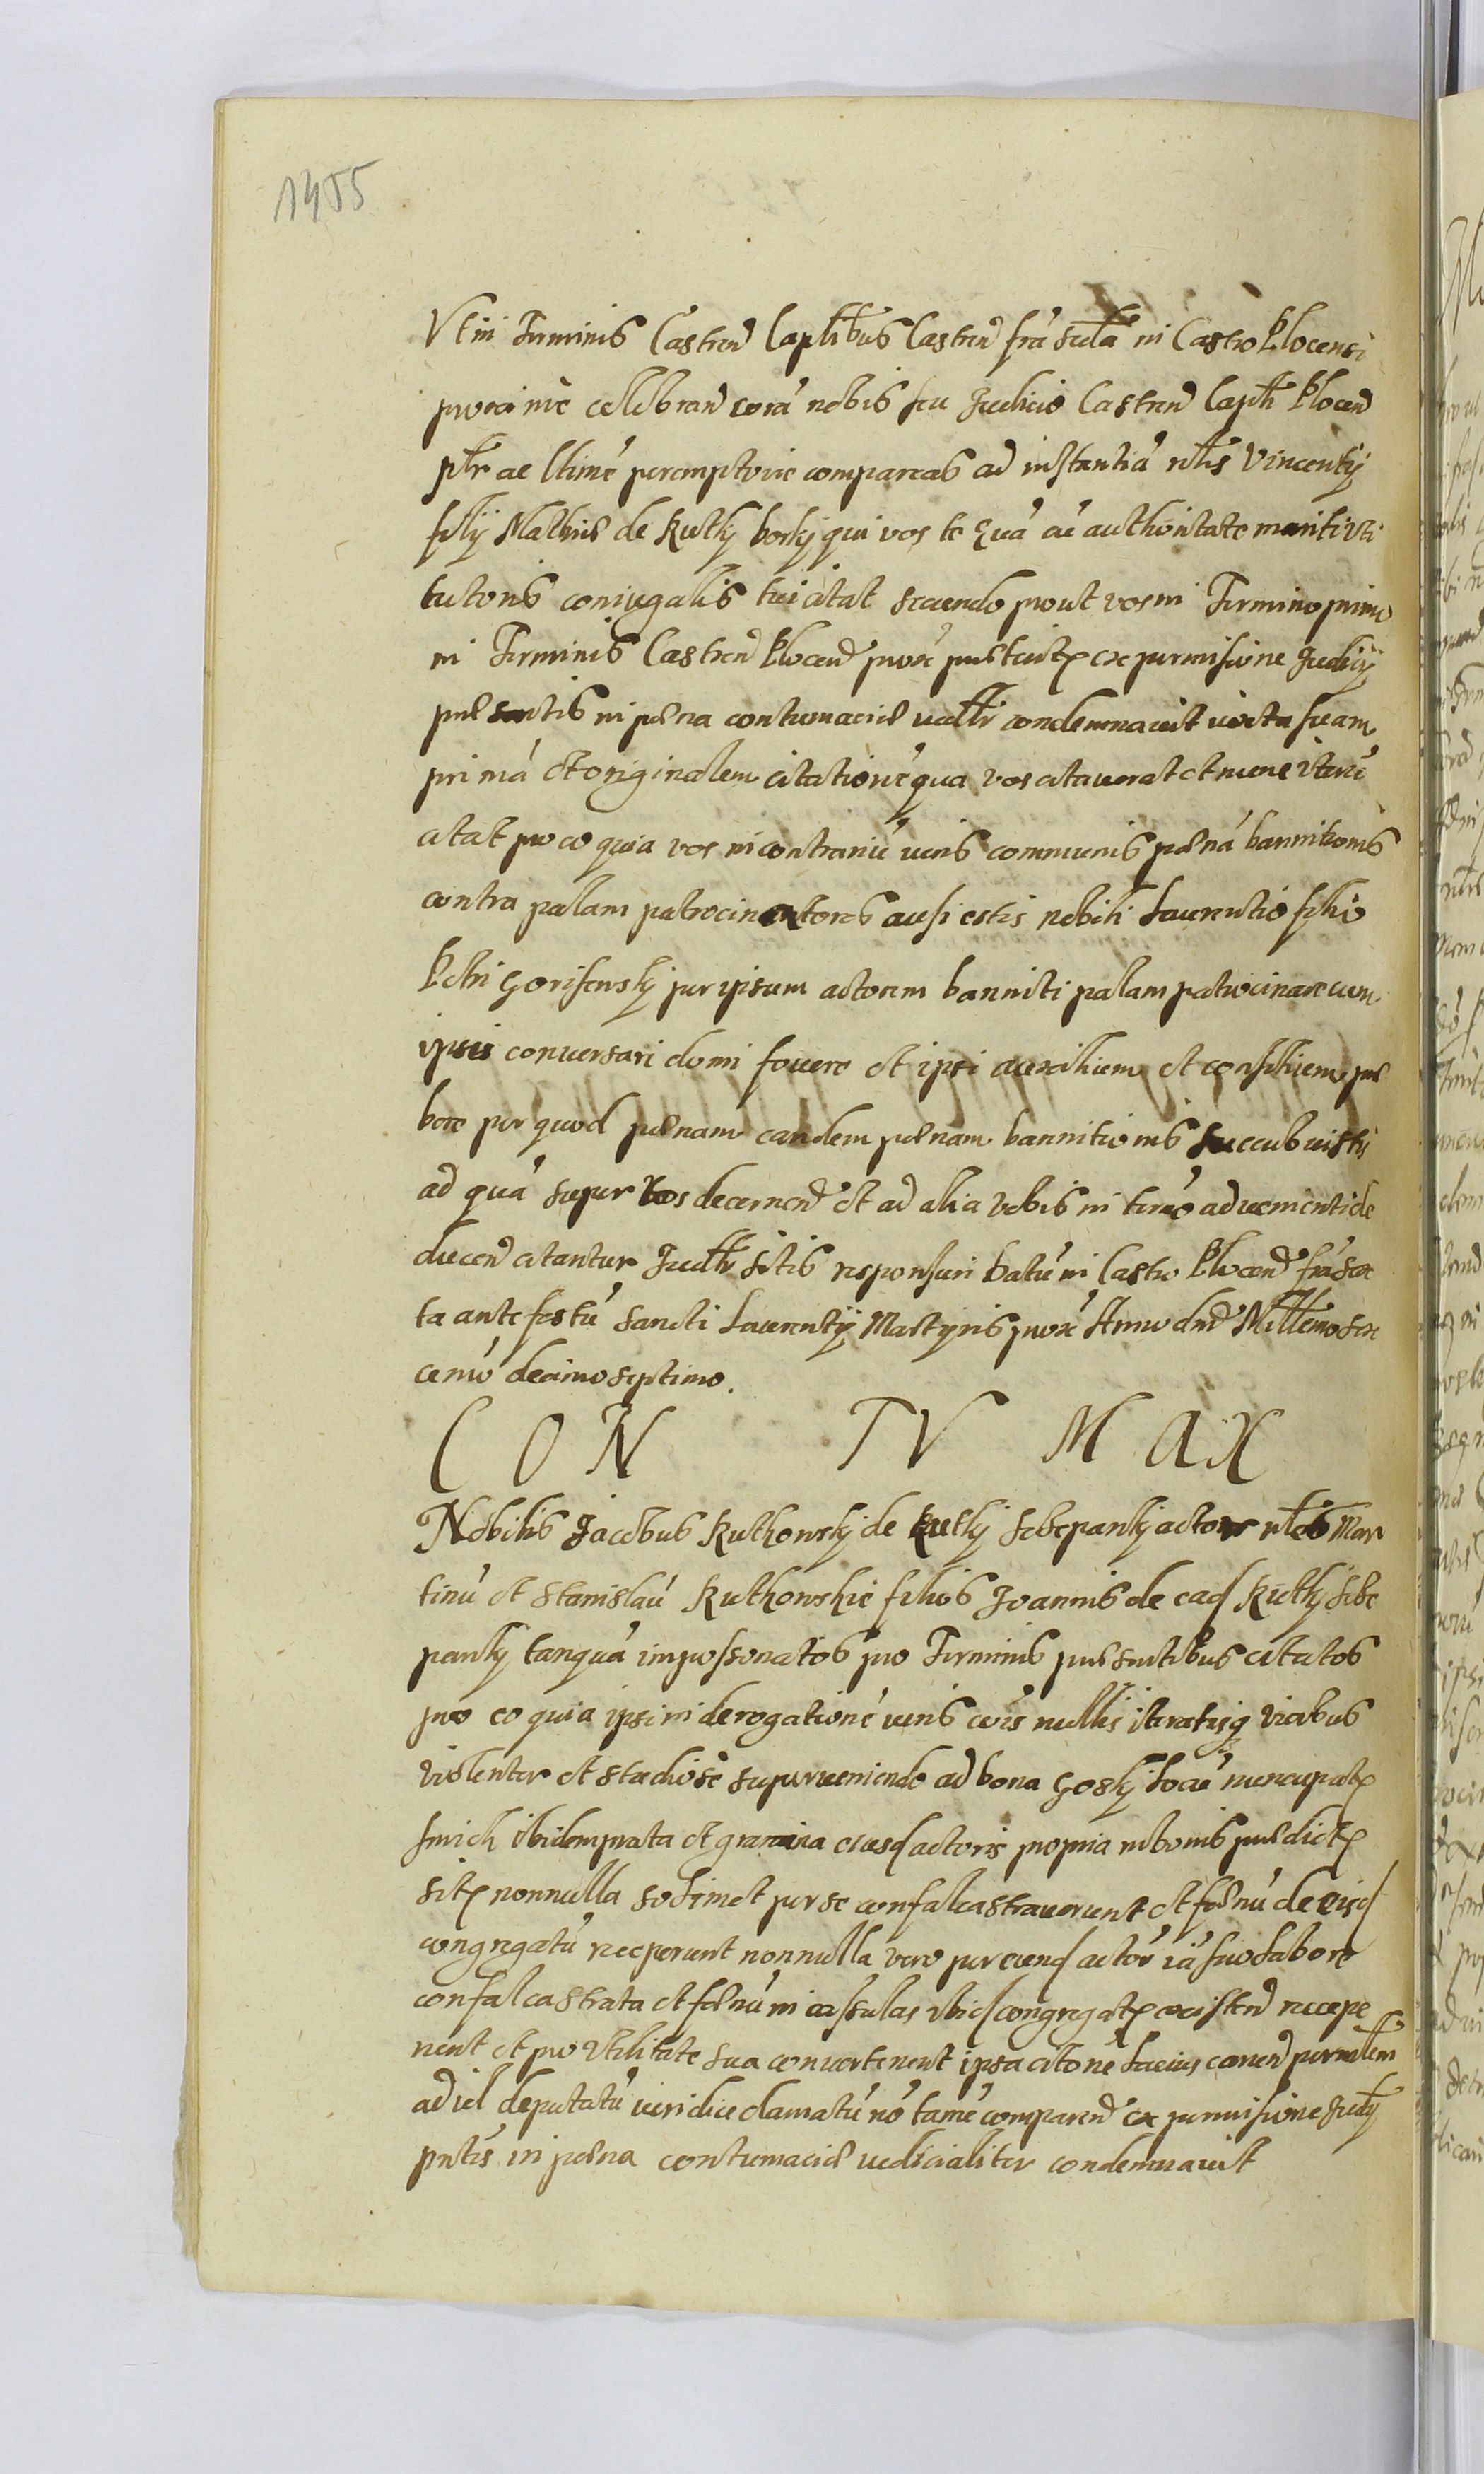 1455
Vt in Terminis Castren Caplibus Castren fra scda in Castro Plocensi
proxime celebran corā nobis seu Judicio Castren Caplī Plocen
pltr ac vltimē peremptorie compareas ad instantiā nlis Vincentÿ
filÿ Mathiæ de Rutky borky qui vos te quā cū authoritate mariti vti
tutoris coniugalis tui citat sciendo prout vos in Termino primo
in Terminis Castren Plocen prox præterit ex permissione Judicÿ
præsentis in pæna contumaciæ iudltr condemnauit iuxta suam
primā et originalem citationē qua vos citauerat et nunc iterū
citat pro eo quia vos in contrariū iuris communis pænā bannitionis
contra palam patrocinatores ausi estis nobili Laurentio filio
Petri Goriszewsky per ipsum actorem banniti palam patrocinare cum
ipsis conuersari domi fouere et ipsi auxilium et consilium præ
bere per quod pænam eandem pænam bannitionis succubuistis
ad quā super vos decernen et ad alia vobis in termō aduenienti de
ducen citantur Judltr sitis responsuri Datū in Castro Plocen fra sex
ta ante festū Sancti Laurentÿ Martyris prox Anno dni Millēmo sex
cenmō decimo septimo.
CON TV MAX
Nobilis Jacobus Rutkowsky de Rutky Scbepanky actor nlēs Mar
tinū et Stanislaū Rutkowskie filios Joannis de ead Rutky Scbe
panky tanquā impossonatos pro Terminis præsentibus citatos
pro eo quia ipsi in derogationē iuris cōis nullis iteratisq vicibus
violenter et studiosè superueniendo ad bona Gosky Locū nuncupat
smich ibidem prata et gramina eiusd actoris propria in bonis prædict
sit nonnulla sobimet per se confalcastrauerunt et fænū de eisd
congregatū receperunt nonnulla vero per eund actorē iā suo Labore
confalcastrata et fænū in cassulas ibid congregat existen recepe
runt et pro vtilitate sua conuerterunt ipsa citone Lacius canen per mltem
ad id deputatū iuridice clamatū nō tamē comparen ex permissione Judÿ
pntis in pæna contumaciæ iudicialiter condemnauit